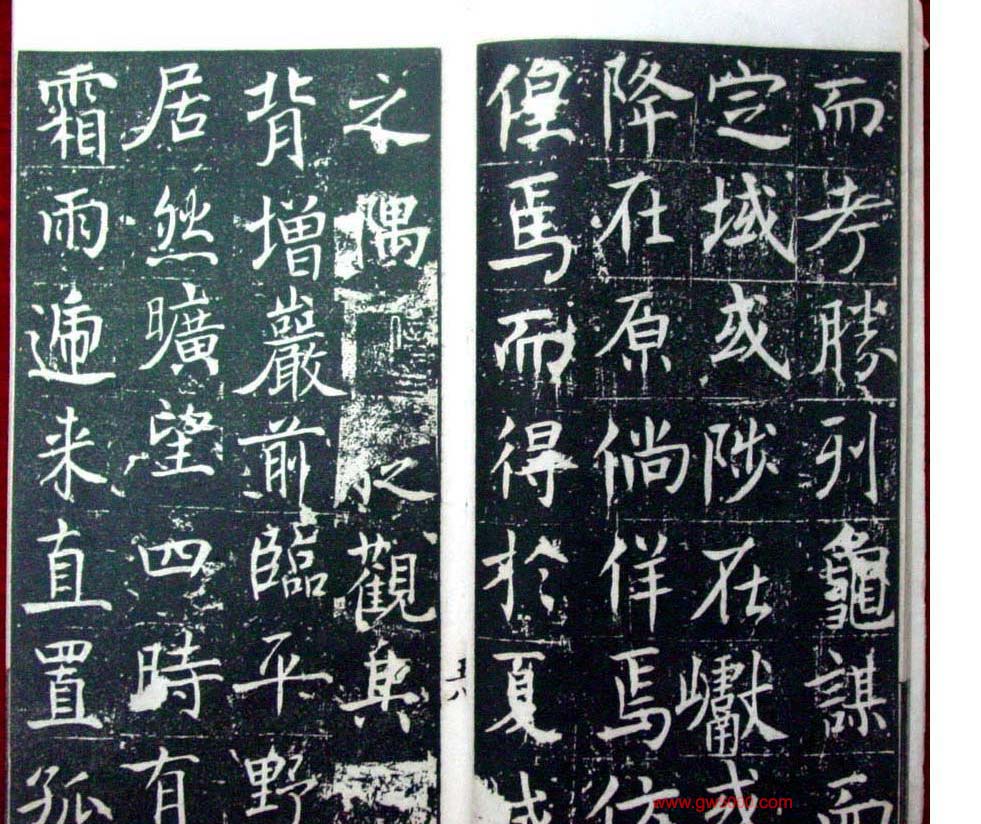 而考勝列龜謀而
定域或陟在巘或
降在原倘佯焉仿
偟焉而得於夏城
之隅之觀其
背增巖前臨平野
居然曠望四時有
霜雨遞来直置孤